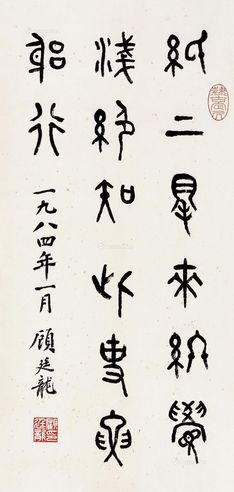 紙上得來終覺
淺絕知此事要
躬行
一九八四年一月 顧廷龍